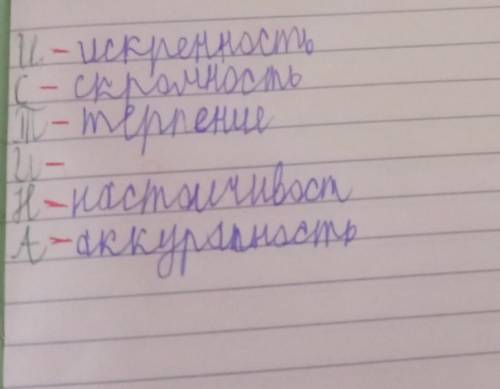 И - искренность
С - скромность
Т - терпение
И -
Н - настоичивост
А - аккуратность